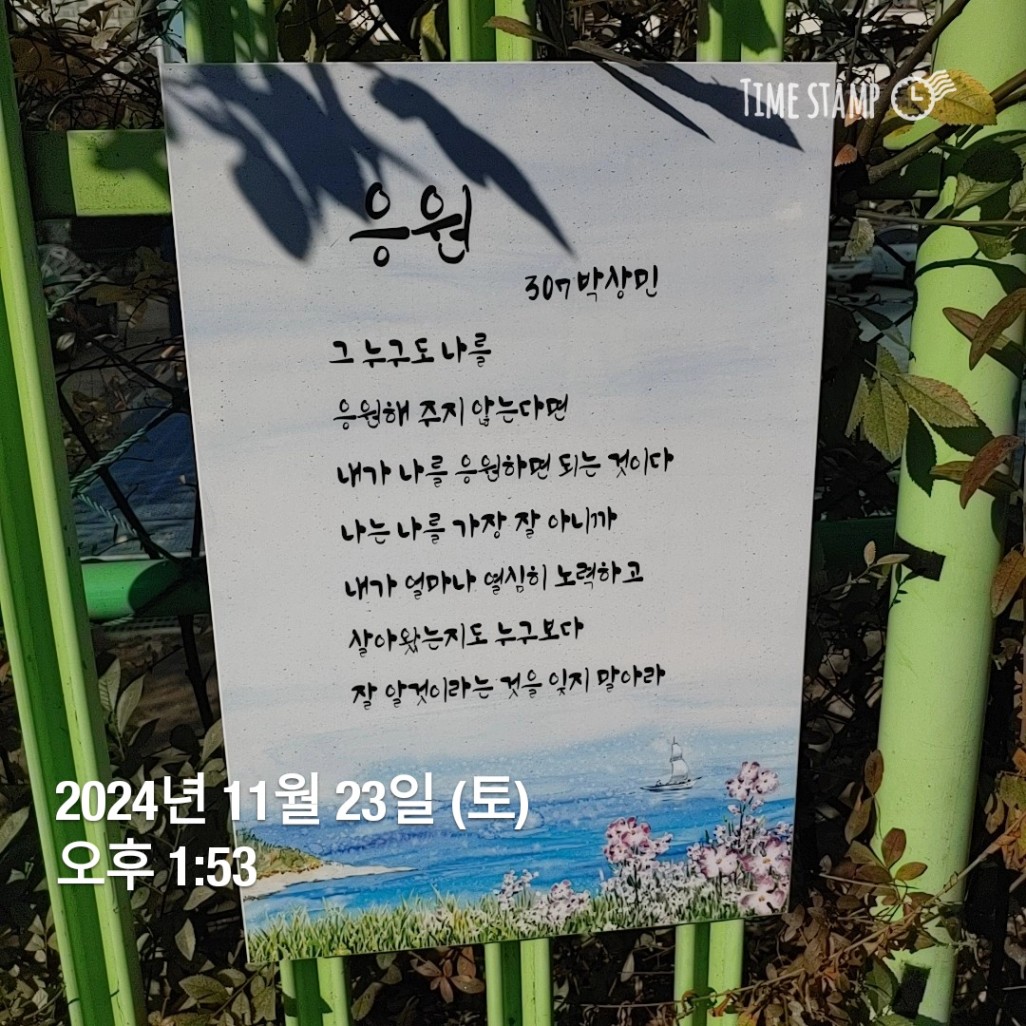 TIME STAMP
응원
307 박상민
그 누구도 나를
응원해 주지 않는다면
내가 나를 응원하면 되는 것이다
나는 나를 가장 잘 아니까
내가 얼마나 열심히 노력하고
살아왔는지도 누구보다
잘 알것이라는 것을 잊지 말아라
2024년 11월 23일 (토)
오후 1:53